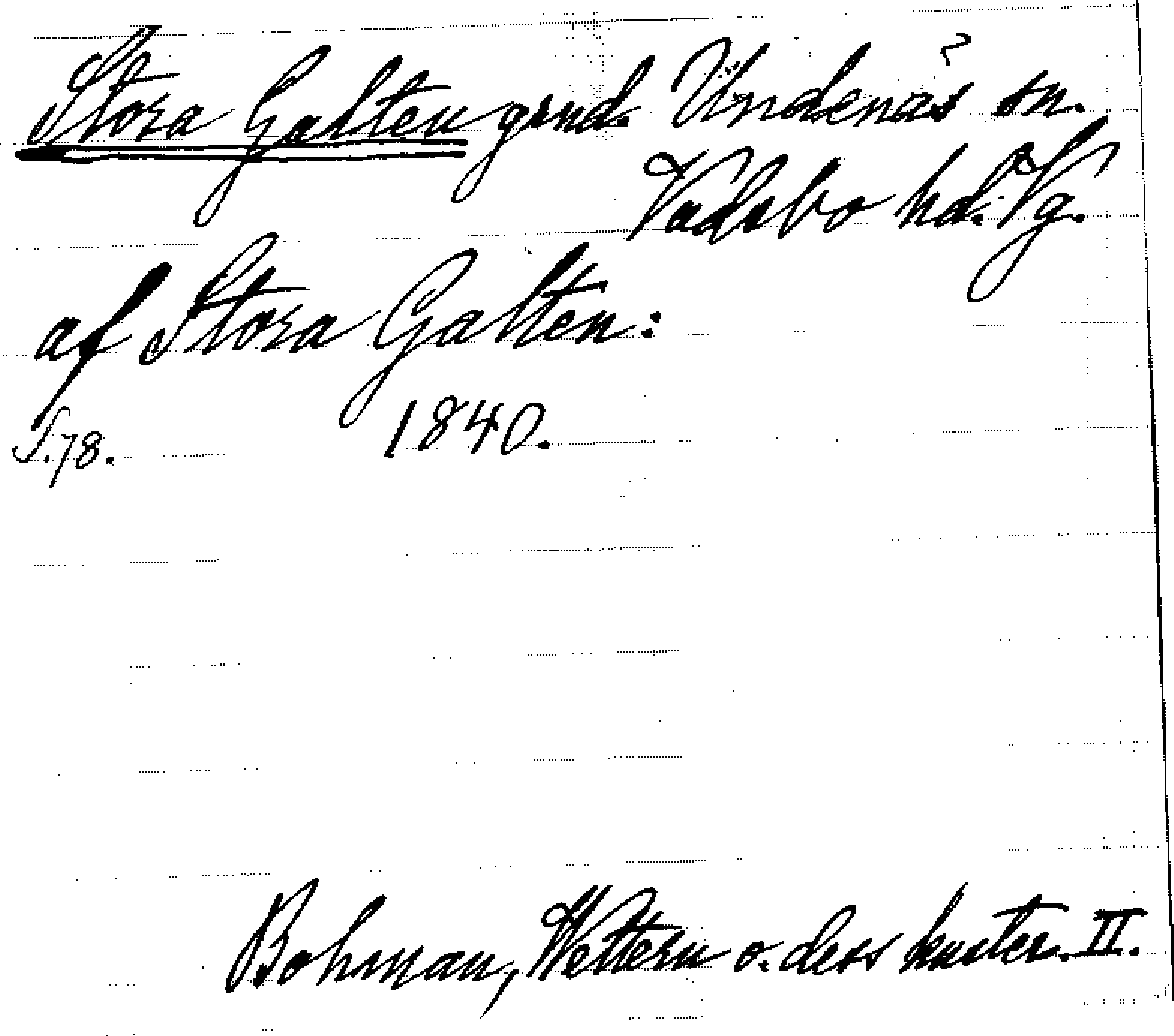 Stora Galten grund. Undenäs? sn.
Vadsbo hd. Vg.
af Stora Galten:
S. 78. 1840.
Bohman, Wettern o. dess kuster. II.